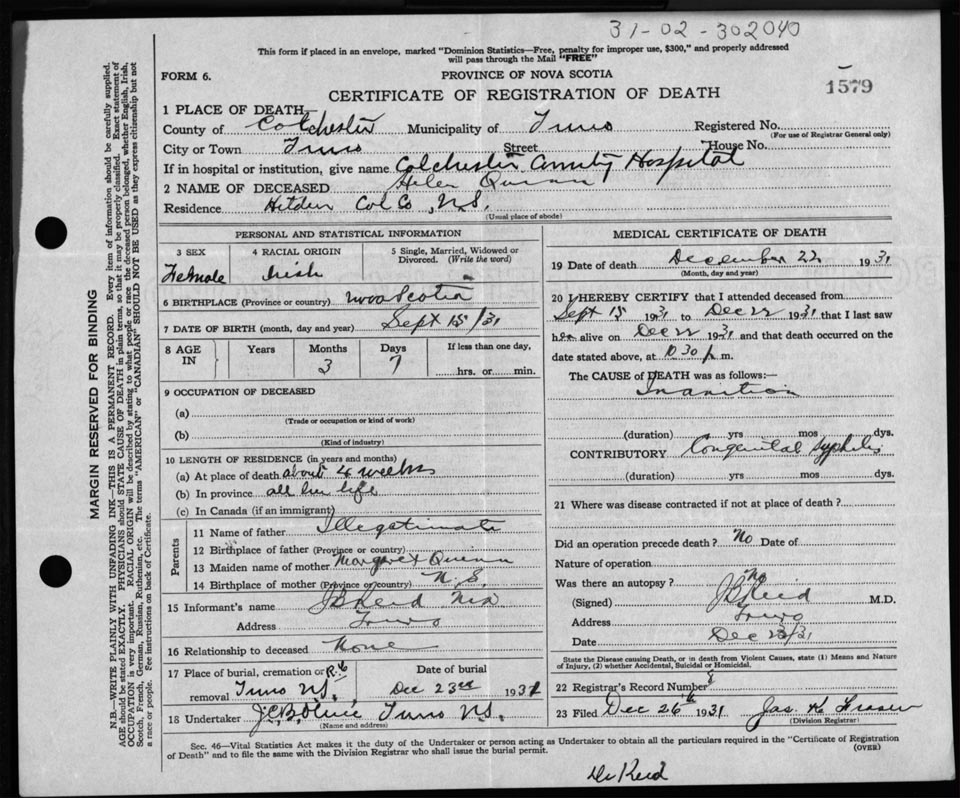 31-02-302040
This form if placed in an envelope, marked "Dominion Statistics—Free, penalty for improper use, $300," and properly addressed
will pass through the Mail "FREE"
FORM 6.
PROVINCE OF NOVA SCOTIA
1579
CERTIFICATE OF REGISTRATION OF DEATH
1 PLACE OF DEATH—
County of Colchester Municipality of Truro Registered No.
(For use of Registrar General only)
City or Town Truro Street House No.
If in hospital or institution, give name Colchester County Hospital
2 NAME OF DECEASED Helen Quinn
Residence Hilden Col Co, N.S.
(Usual place of abode)
PERSONAL AND STATISTICAL INFORMATION
3 SEX 4 RACIAL ORIGIN 5 Single, Married, Widowed or
Divorced. (Write the word)
Female Irish
6 BIRTHPLACE (Province or country) Nova Scotia
7 DATE OF BIRTH (month, day and year) Sept 15/31
8 AGE IN Years Months Days If less than one day,
3 7 hrs. or min.
9 OCCUPATION OF DECEASED
(a)
(Trade or occupation or kind of work)
(b)
(Kind of industry)
10 LENGTH OF RESIDENCE (in years and months)
(a) At place of death about 4 weeks
(b) In province all her life
(c) In Canada (if an immigrant)
Parents
11 Name of father Illegitimate
12 Birthplace of father (Province or country)
13 Maiden name of mother Margaret Quinn
14 Birthplace of mother (Province or country) N.S.
15 Informant's name J B Reid
Address Truro
16 Relationship to deceased None
17 Place of burial, cremation or Date of burial
removal Truro N.S. Dec 23rd 1931
18 Undertaker Truro N.S.
(Name and address)
MEDICAL CERTIFICATE OF DEATH
19 Date of death December 22 1931
(Month, day and year)
20 I HEREBY CERTIFY that I attended deceased from
Sept 15 1931 to Dec 22 1931 that I last saw
her alive on Dec 22 1931 and that death occurred on the
date stated above, at 10 30 p.m.
The CAUSE of DEATH was as follows:—
Inanition
(duration) yrs mos dys.
CONTRIBUTORY Congenital Syphilis
(duration) yrs mos dys.
21 Where was disease contracted if not at place of death?
Did an operation precede death? No Date of
Nature of operation
Was there an autopsy? No
(Signed) J B Reid M.D.
Address Truro
Date Dec 23/31
State the Disease causing Death, or in death from Violent Causes, state (1) Means and Nature
of Injury, (2) whether Accidental, Suicidal or Homicidal.
22 Registrar's Record Number
23 Filed Dec 26th 1931 Jas. H. Fraser
(Division Registrar)
Sec. 46—Vital Statistics Act makes it the duty of the Undertaker or person acting as Undertaker to obtain all the particulars required in the "Certificate of Registration
of Death" and to file the same with the Division Registrar who shall issue the burial permit.
(OVER)
Dr Reid
MARGIN RESERVED FOR BINDING
N.B.—WRITE PLAINLY WITH UNFADING INK—THIS IS A PERMANENT RECORD. Every item of information should be carefully supplied.
AGE should be stated EXACTLY. PHYSICIANS should STATE CAUSE OF DEATH in plain terms, so that it may be properly classified. Exact statement of
OCCUPATION is very important. RACIAL ORIGIN will be described by stating to what people or race the deceased person belonged, whether English, Irish,
Scotch, French, German, Russian, Ruthenian, etc. The terms "AMERICAN" or "CANADIAN" SHOULD NOT BE USED as they express citizenship but not
a race or people. See instructions on back of Certificate.